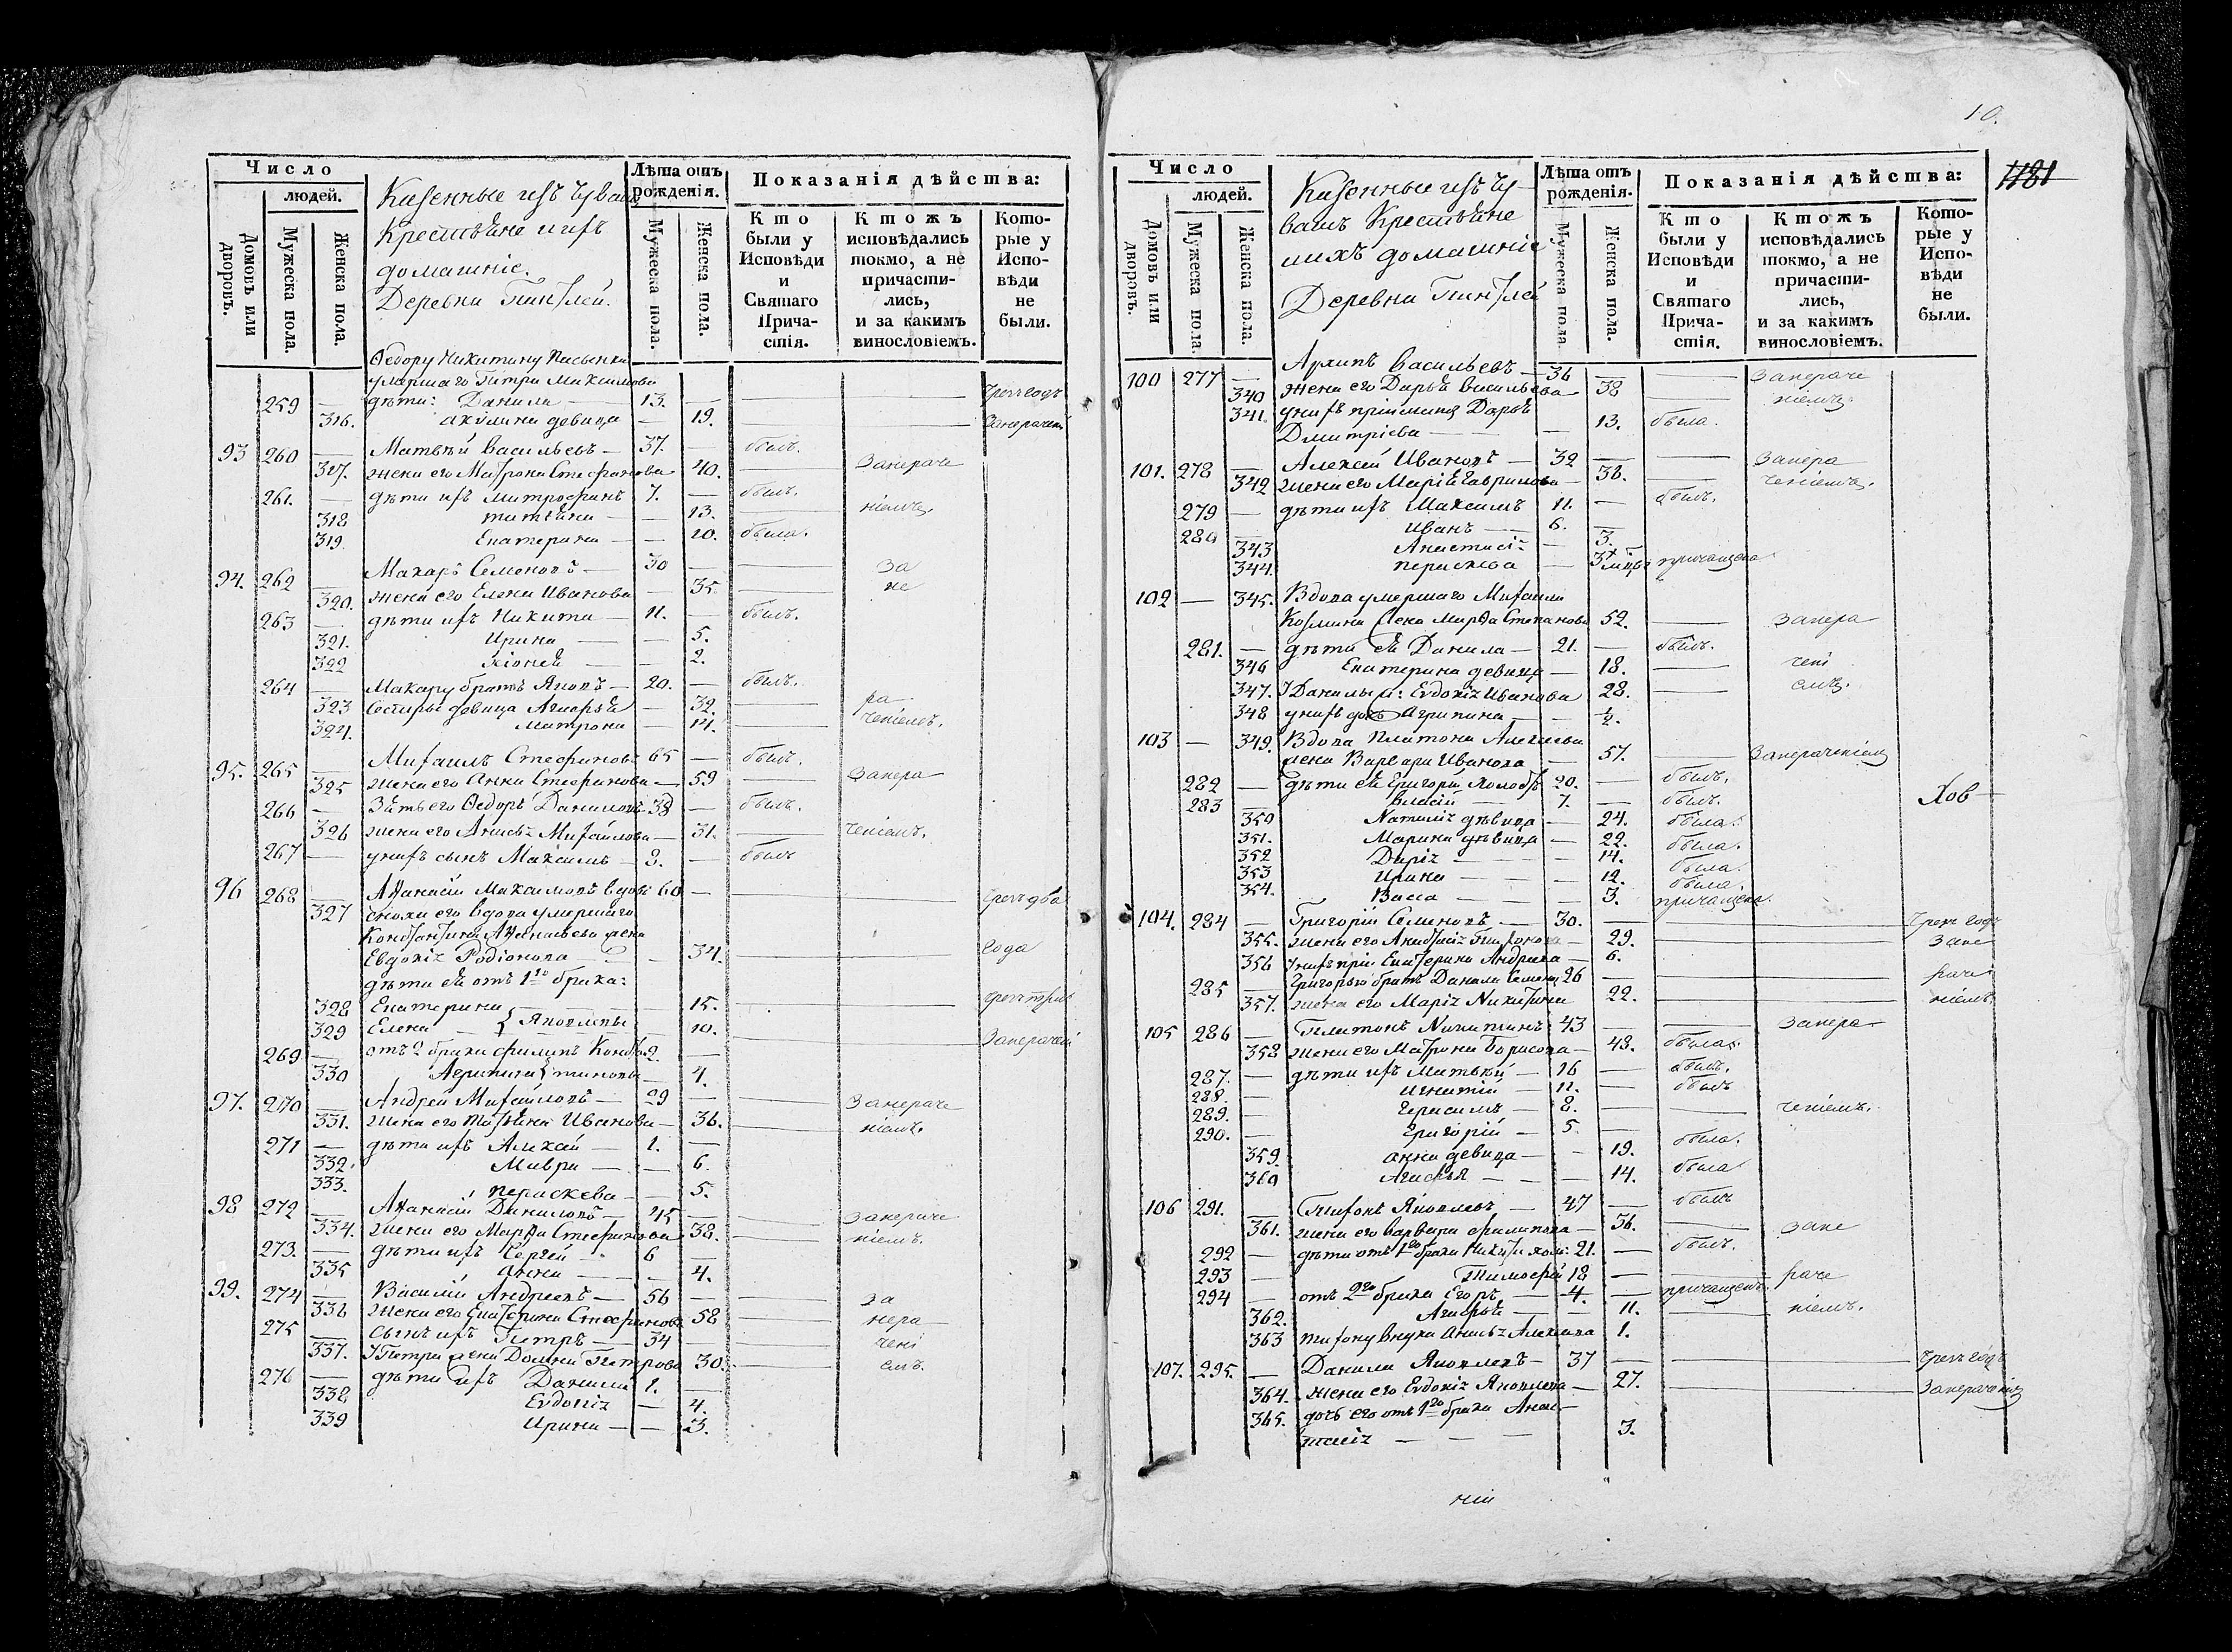 Число
людей.
Домовъ или дворовъ.
Мужеска пола.
Женска пола.
Казенные изъ Чувашъ
Крестьяне и ихъ
домашніе.
Деревни Пинзлей.
Лѣта отъ рожденія.
Мужеска пола.
Женска пола.
Показанія дѣйства:
Кто были у Исповѣди и Святаго Причастія.
Ктожъ исповѣдались токмо, а не причастились, и за какимъ винословіемъ.
Которые у Исповѣди не были.
Ѳедору Никитину пасынки
умершаго Петра Максимова
259 — дѣти: Данила — 13. — чрезъ годъ
316. Акулина девица — 19.
93 260 — Матвѣй Васильевъ — 37. — былъ.
317. жена его Матрона Стефанова 40. занераче
261. — дѣти ихъ Митрофанъ 7. — былъ.
318 Татьяна — — 13. ніемъ.
319. Екатерина — — 10. была.
94. 262 — Макаръ Семеновъ — 30 — за
320. жена его Елена Иванова — 35. не
263 — дѣти ихъ Никита — 11. — былъ.
321. Ирина — — 5.
322 Хіонія — — 2.
264 — Макару братъ Яковъ — 20. — былъ.
323 Сестры девица Агафья — 32. ра
324. Матрона — 14. ченіемъ.
95. 265 — Михаилъ Стефановъ 65 — былъ.
325 жена его Анна Стефанова — 59 занера
266 — Зять его Ѳедоръ Даниловъ 38 — былъ.
326 жена его Анисья Михайлова — 31. ченіемъ.
267 — у нихъ сынъ Максимъ — 3. — былъ
96 268 — Аѳанасій Максимовъ вдовъ 60 — чрезъ два
327 сноха его вдова умершаго
Константина Аѳанасьева жена
Евдокія Родіонова — 34. года
дѣти ея отъ 1го брака:
328 Екатерина 15.
329 Елена } Яковлевы 10.
269 — отъ 2 брака Филипъ Конс 2. —
330 Агрипина } тиновы 4.
97. 270 — Андрей Михайловъ — 29 — занераче
331. жена его Татьяна Иванова — 36. ніемъ.
271 — дѣти ихъ Алексѣй — 1. —
332. Мавра — — 6.
333. Параскева — — 5.
98 272 — Аѳанасій Даниловъ — 45 — занераче
334. жена его Марѳа Стефанова 38. ніемъ.
273. — дѣти ихъ Сергей — 6 —
335 Анна — — 4.
99. 274 — Василій Андреевъ — 56 — за
336 жена его Екатерина Стефанова 58 нера
275 — Сынъ ихъ Петръ — 34 — чені
337. У Петра жена Домна Петрова 30. емъ.
276 — дѣти ихъ Данила 1. —
338 Евдокія — 4.
339 Ирина — — 3.
10.
1181
Число
людей.
Домовъ или дворовъ.
Мужеска пола.
Женска пола.
Казенные изъ Чу-
вашъ Крестьяне
и ихъ домашніе
Деревни Пинзлей
Лѣта отъ рожденія.
Мужеска пола.
Женска пола.
Показанія дѣйства:
Кто были у Исповѣди и Святаго Причастія.
Ктожъ исповѣдались токмо, а не причастились, и за какимъ винословіемъ.
Которые у Исповѣди не были.
100 277 — Архипъ Васильевъ — 36 — занераче
340 жена его Дарья Васильева 38 ніемъ.
341. у нихъ пріимыш Дарья
Дмитріева — — 13. была.
101. 278 — Алексѣй Ивановъ — 32 — занера
342 жена его Марія Гаврилова — 38. ченіемъ.
279 — дѣти ихъ Максимъ 11. — былъ.
280 — Иванъ — 6. —
343 Анастасі — 3.
344. Параскева — причащена
102 — 345. Вдова умершаго Михаила
Козмина жена Марѳа Степанова 52. занера
281. — дѣти ея Данила — 21. — былъ.
346 Екатерина девица — 18. чені
347. У Данилы ж: Евдокія Иванова 28. емъ.
348 у нихъ дочь Агрипина — — ½.
103 — 349. Вдова Платона Алексѣева
жена Варвара Иванова — 57. занераченіемъ
282 — дѣти ея Григорій холостъ 20. — былъ.
283 — Власій — 7. — былъ.
350 Наталія дѣвица — 24. была.
351. Марина дѣвица — 22. была.
352 Дарія — — — 14. была.
353 Ирина — — — 12. была.
354. Васса — — — 3. причащена.
Хов —
104. 284 — Григорій Семеновъ — 30. — чрезъ годъ
355. жена его Анастасія Тихонова — 29. зане
356 у нихъ прі: Екатерина Андреева — 6.
285 — Григорью братъ Данила Семенов 26 — раче
357. жена его Марія Никитина 22. ніемъ.
105 286 — Платонъ Никитинъ 43 — занера
358 жена его Матрона Борисова — 48. была.
287. — дѣти ихъ Матвѣй — 16 — былъ.
288. — Игнатій — 11. — былъ
289. — Герасимъ — 8. — ченіемъ.
290. — Григорій — 5. —
359. Анна девица — — 19. была.
360 Агафья — — — 14. была
106 291. — Тихонъ Яковлевъ — 47 — былъ
361. жена его Варвара Филипова — 56. зане
292 — дѣти отъ 1го брака Никита холо: 21. — былъ.
293 — Тимофей 18 — раче
294 — отъ 2го брака Егоръ — 4. — причащенъ
362. Агафья — — 11. ніемъ.
363 Тихону внука Анисья Алексѣева 1.
107. 295. — Данила Яковлевъ — 37 — чрезъ годъ
364. жена его Евдокія Яковлева — 27. занераченіем
365. дочь его отъ 1го брака Анас-
тасія — — — 3.